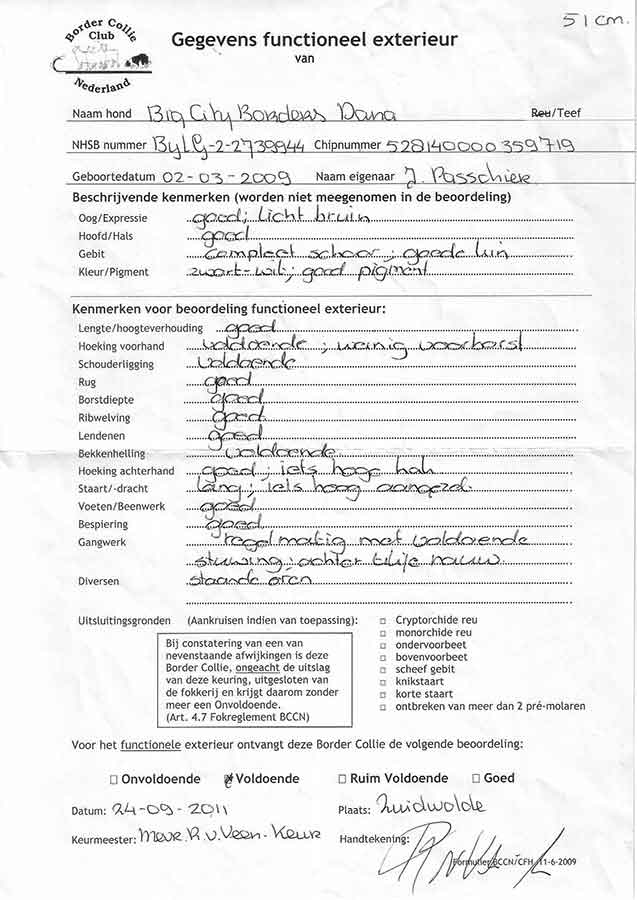 51cm.
Border Collie
Club
Nederland
Gegevens functioneel exterieur
van
Naam hond Big City Borders Dana Reu/Teef
NHSB nummer ByLG-2-2739944 Chipnummer 528140000359719
Geboortedatum 02-03-2009 Naam eigenaar J. Passchier
Beschrijvende kenmerken (worden niet meegenomen in de beoordeling)
Oog/Expressie goed; licht bruin
Hoofd/Hals goed
Gebit compleet schaar; goede lijn
Kleur/Pigment zwart-wit; goed pigment
Kenmerken voor beoordeling functioneel exterieur:
Lengte/hoogteverhouding goed
Hoeking voorhand voldoende; weinig voorborst
Schouderligging voldoende
Rug goed
Borstdiepte goed
Ribwelving goed
Lendenen goed
Bekkenhelling voldoende
Hoeking achterhand goed; iets hoge hak
Staart/-dracht lang; iets hoog aangezet
Voeten/Beenwerk goed
Bespiering goed
Gangwerk regelmatig met voldoende
stuwing; achter nauw.
Diversen staande oren
Uitsluitingsgronden (Aankruisen indien van toepassing):
Bij constatering van een van
nevenstaande afwijkingen is deze
Border Collie, ongeacht de uitslag
van deze keuring, uitgesloten van
de fokkerij en krijgt daarom zonder
meer een Onvoldoende.
(Art. 4.7 Fokreglement BCCN)
□ Cryptorchide reu
□ monorchide reu
□ ondervoorbeet
□ bovenvoorbeet
□ scheef gebit
□ knikstaart
□ korte staart
□ ontbreken van meer dan 2 pré-molaren
Voor het functionele exterieur ontvangt deze Border Collie de volgende beoordeling:
□ Onvoldoende ☒ Voldoende □ Ruim Voldoende □ Goed
Datum: 24-09-2011 Plaats: Zuidwolde
Keurmeester: Mevr. R. v. Veen-Keur Handtekening:
Formulier/BCCN/CFH 11-6-2009